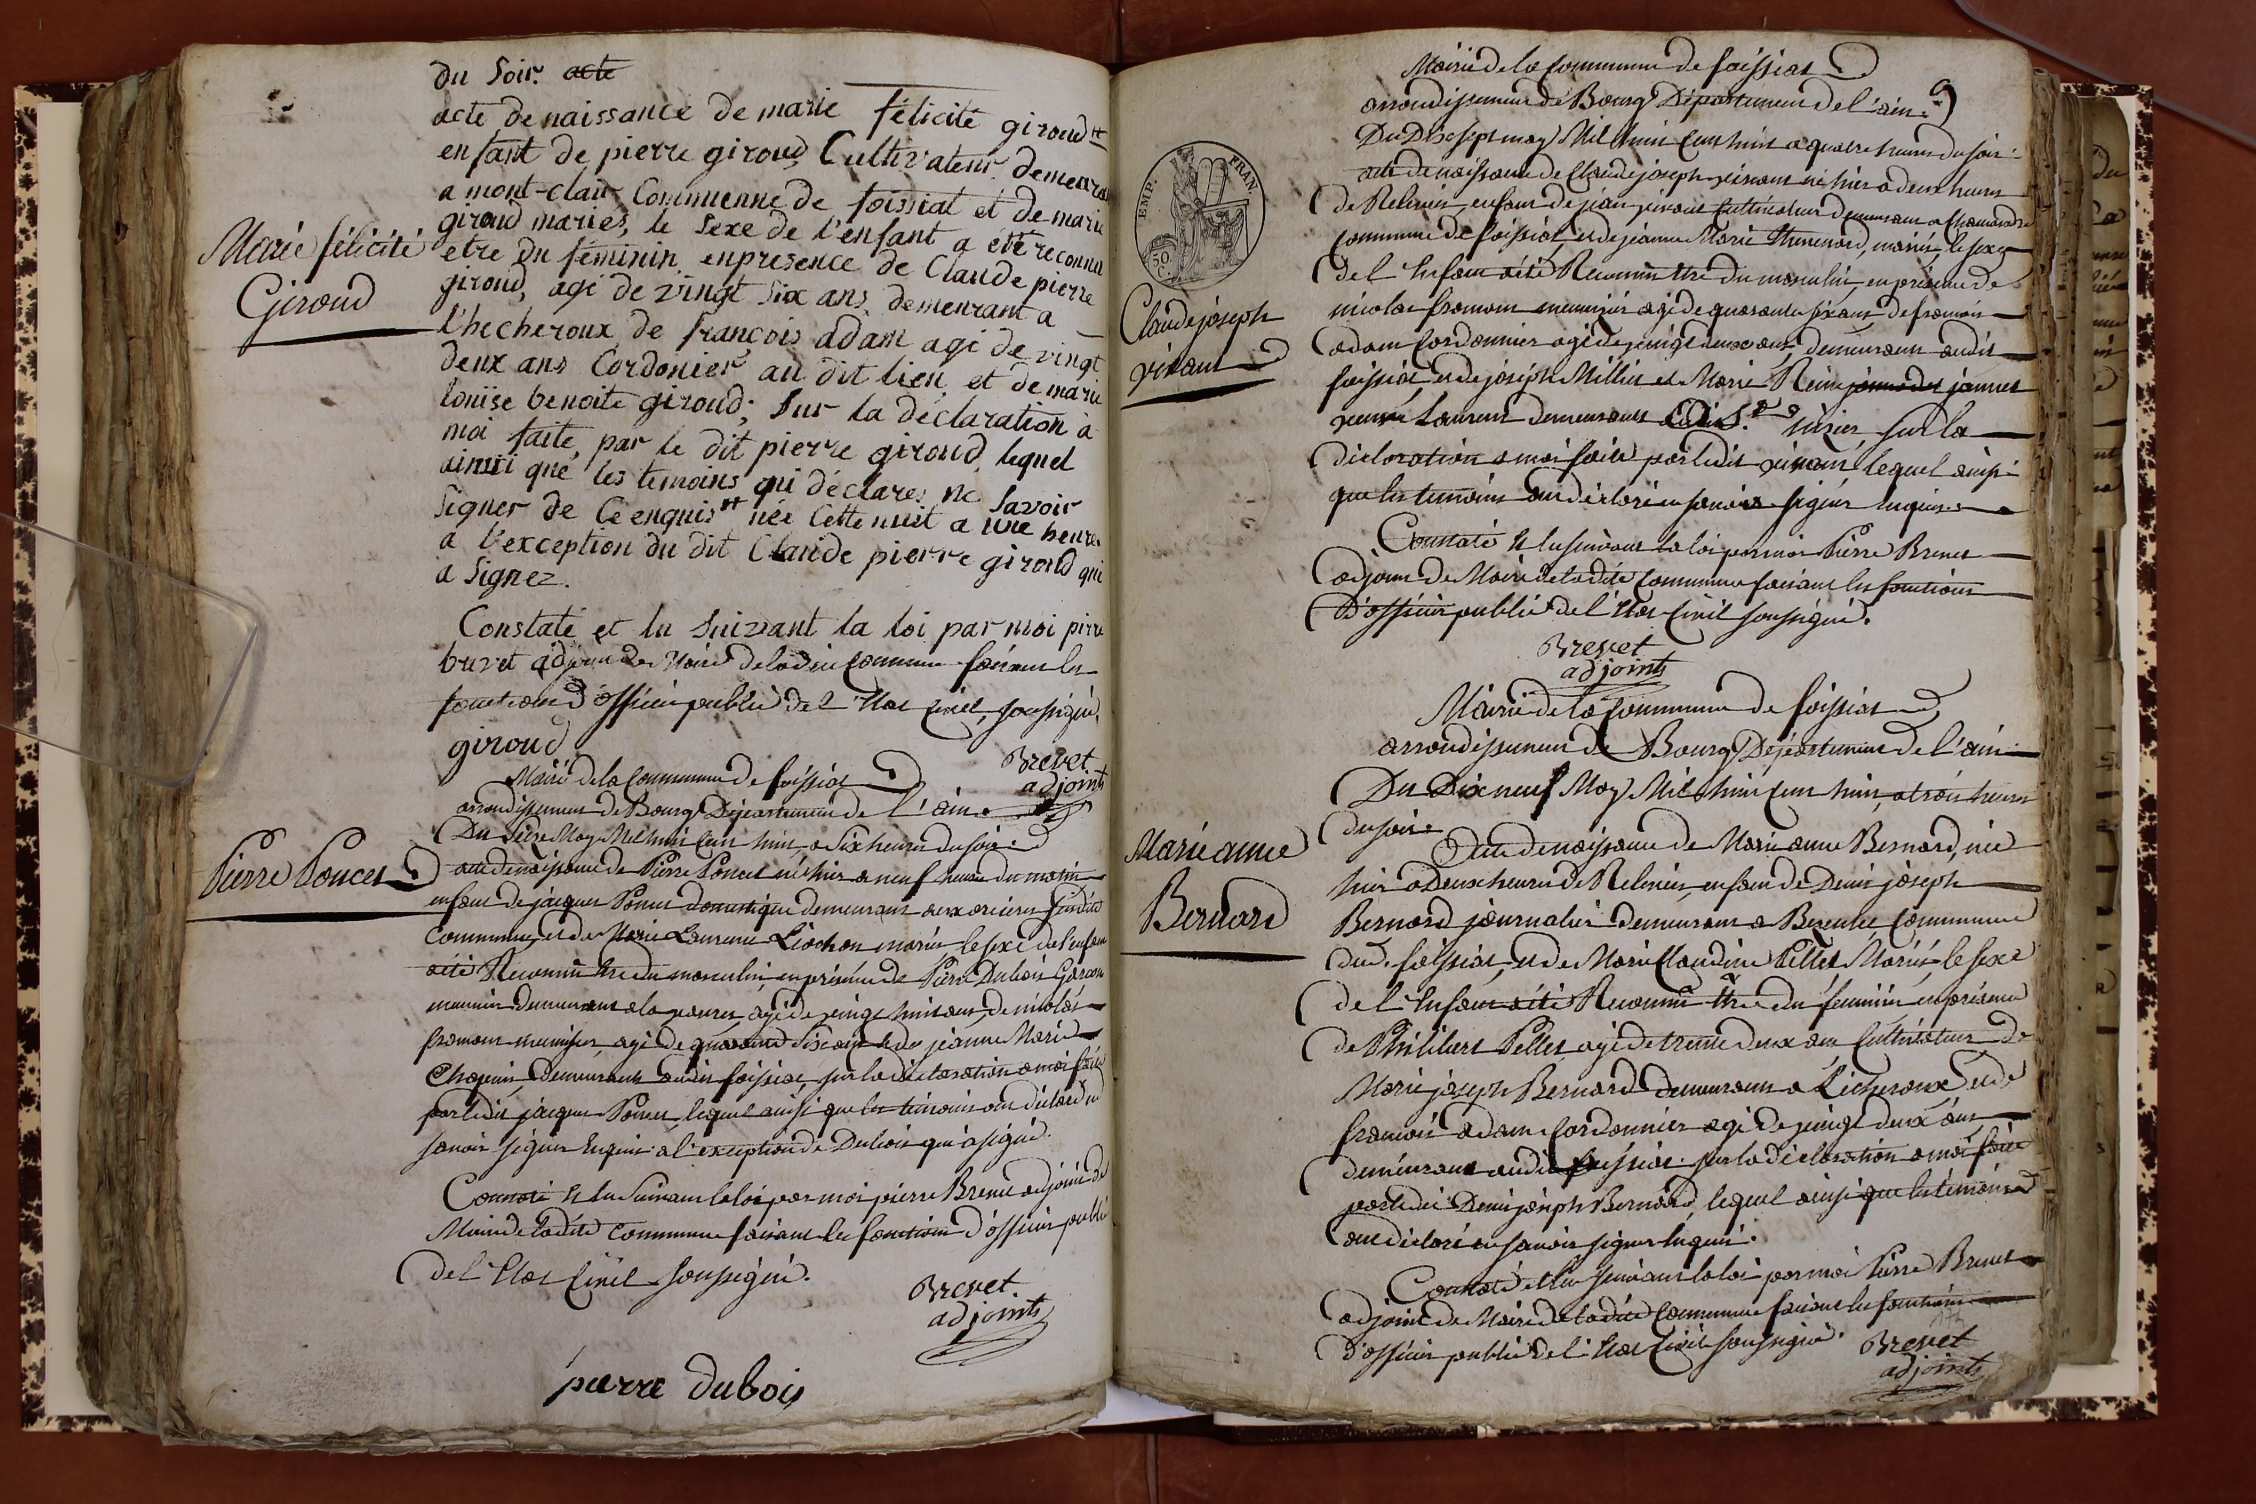 du soir. acte
acte de naissance de marie félicité giroud
enfant de pierre giroud Cultivateur demeurant
a mont-clair Commenne de foissiat et de marie
giroud mariés, le sexe de l'enfant a été reconnu
etre du féminin en presence de Claude pierre
giroud, agé de vingt six ans demeurant a
l'hecheroux, de françois adam agé de vingt
deux ans Cordonier au dit lieu et de marie
louise benoite giroud; sur la déclaration à
moi faite, par le dit pierre giroud, lequel
ainsi que les temoins qui déclares ne savoir
signer de Ce enquis née Cette nuit a une heure.
a l'exception du dit Claude pierre giroud qui
a signez.
Marie félicité
Giroud
Constaté et lu suivant la loi par moi pirre
brevet adjoint de Maire de ladite Commune faisant les
fonctions d'officier public de l'Etat Civil, soussigné.
giroud
Brevet
adjoints
Mairie de la Commune de foissiat
arrondissement de Bourg Département de l'ain.
Du seize May Mil huit Cent huit, a Six heures du soir.
Pierre Poncet
acte de naissance de Pierre Poncet né hier a neuf heures du matin
enfant de jacques Poncet domestique demeurant aux orcieres susdite
commune, et de Marie Laurence Liochon mariés le sexe de l'enfant
a été Reconnu Etre du masculin, en présence de Pierre Dubois Garcon
meunier demeurant a la agé de vingt huit ans, de nicolas
fromont menuisier, agé de quarante six ans et de jeanne Marie
demeurants audit foissiat, sur la déclaration a moi faite
par ledit jacques Poncet, lequel ainsi que les témoins ont déclaré ne
savoir signer Enquis a l'exception de Dubois qui a signé.
Constaté Et lu Suivant la loi par moi pierre Brevet adjoint de
Maire de ladite commune faisant les fonctions d'officier public
de l'Etat Civil soussigné.
Brevet.
adjoints
pierre dubois
Mairie de la Commune de foissiat
arrondissement de Bourg Département de l'ain.
9
Du Dix sept may Mil huit Cent huit a quatre heures du soir
EMP. FRAN.
50 C.
acte de naissance de Claude joseph vivant né hier a deux heures
de Relevée, enfant de jean vivant Cultivateur demeurant a
commune de foissiat, et de jeanne Marie Thevenard, mariés, le sexe
de l'Enfant a été Reconnu Etre du masculin, en présence de
nicolas fromont menuisier agé de quarante six ans, de francois
Claude joseph
vivant
adam Cordonnier agé de vingt deux ans, demeurants audit
foissiat et de joseph Millier et Marie Reine jannet
veuve Laurent demeurants sur la
déclaration a moi faite par ledit vivant lequel ainsi
que les temoins ont déclaré ne savoir signer enquis.
Constaté Et lu suivant la loi par moi Pierre Brevet
adjoint de Maire de ladite Commune faisant les fonctions
d'officier public de l'Etat Civil soussigné.
Brevet
adjoints
Mairie de la Commune de foissiat
arrondissement de Bourg Département de l'ain
Du Dix neuf May Mil huit Cent huit, a trois heures
du soir
Marie anne
Bernard
acte de naissance de Marie anne Bernard, née
hier a Deux heures de Relevée, enfant de Denis joseph
Bernard journalier demeurant a Commune
dud. foissiat, et de Marie Claudine Pellet Mariés, le sexe
de l'Enfant a été Reconnu Etre du feminin en présence
de Philibert Pellet agé de trente deux ans Cultivateur de
Marie joseph Bernard demeurants a Lécheroux et de
francois adam Cordonnier agé de vingt deux ans
demeurant audit foissiat. sur la déclaration a moi faite
par ledit Denis joseph Bernard, lequel ainsi que les témoins
ont déclaré ne savoir signer Enquis.
Constaté et lu suivant la loi par moi Pierre Brevet
adjoint de Maire de ladite Commune faisant les fonctions
d'officier public de l'Etat Civil soussigné.
Brevet
adjoints